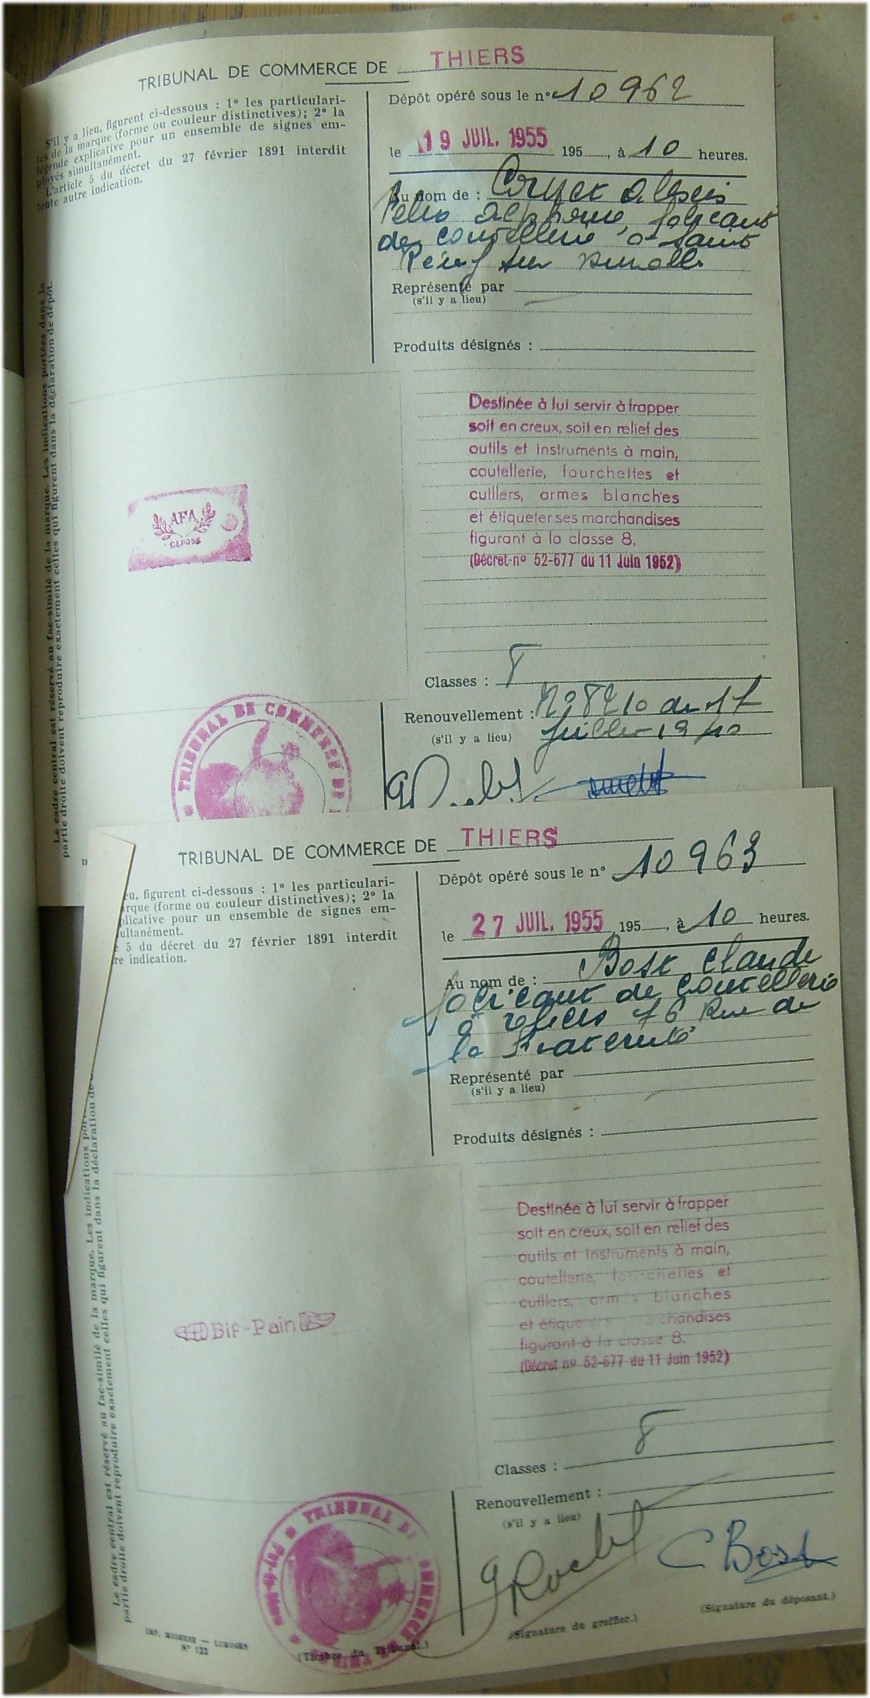 TRIBUNAL DE COMMERCE DE THIERS
S'il y a lieu, figurent ci-dessous : 1° les particulari-
tés de la marque (forme ou couleur distinctives); 2° la
légende explicative pour un ensemble de signes em-
ployés simultanément.
L'article 5 du décret du 27 février 1891 interdit
toute autre indication.
Dépôt opéré sous le n° 10962
le 19 JUIL. 1955 195 , à 10 heures.
Au nom de :
de coutellerie à Saint
Représenté par
(s'il y a lieu)
Produits désignés :
Destinée à lui servir à frapper
soit en creux, soit en relief des
outils et instruments à main,
coutellerie, fourchettes et
cuillers, armes blanches
et étiqueter ses marchandises
figurant à la classe 8.
(Décret nº 52-677 du 11 Juin 1952)
AFA
DEPOSE
Classes : 8
Renouvellement : du 17
(s'il y a lieu) Juillet 1940
TRIBUNAL DE COMMERCE DE
Le cadre central est réservé au fac-similé de la marque. Les indications portées dans la
partie droite doivent reproduire exactement celles qui figurent dans la déclaration de dépôt.
TRIBUNAL DE COMMERCE DE THIERS
eu, figurent ci-dessous : 1° les particulari-
rque (forme ou couleur distinctives); 2° la
plicative pour un ensemble de signes em-
ultanément.
5 du décret du 27 février 1891 interdit
re indication.
Dépôt opéré sous le n° 10963
le 27 JUIL. 1955 195 , à 10 heures.
Au nom de : Bost Claude
fabricant de coutellerie
à Thiers 76 Rue de
la Fraternité
Représenté par
(s'il y a lieu)
Produits désignés :
Destinée à lui servir à frapper
soit en creux, soit en relief des
outils et instruments à main,
coutellerie, fourchettes et
cuillers, armes blanches
et étiqueter chandises
figurant à la classe 8.
(Décret nº 52-677 du 11 Juin 1952)
Bif-Pain
Classes : 8
Renouvellement :
(s'il y a lieu)
G Rochel
C Bost
(Signature du greffier.)
(Signature du déposant.)
TRIBUNAL DE COMMERCE
(Timbre du Tribunal.)
IMP. MODERNE — LIMOGES
N° 122
Le cadre central est réservé au fac-similé de la marque. Les indications
partie droite doivent reproduire exactement celles qui figurent dans la déclaration de